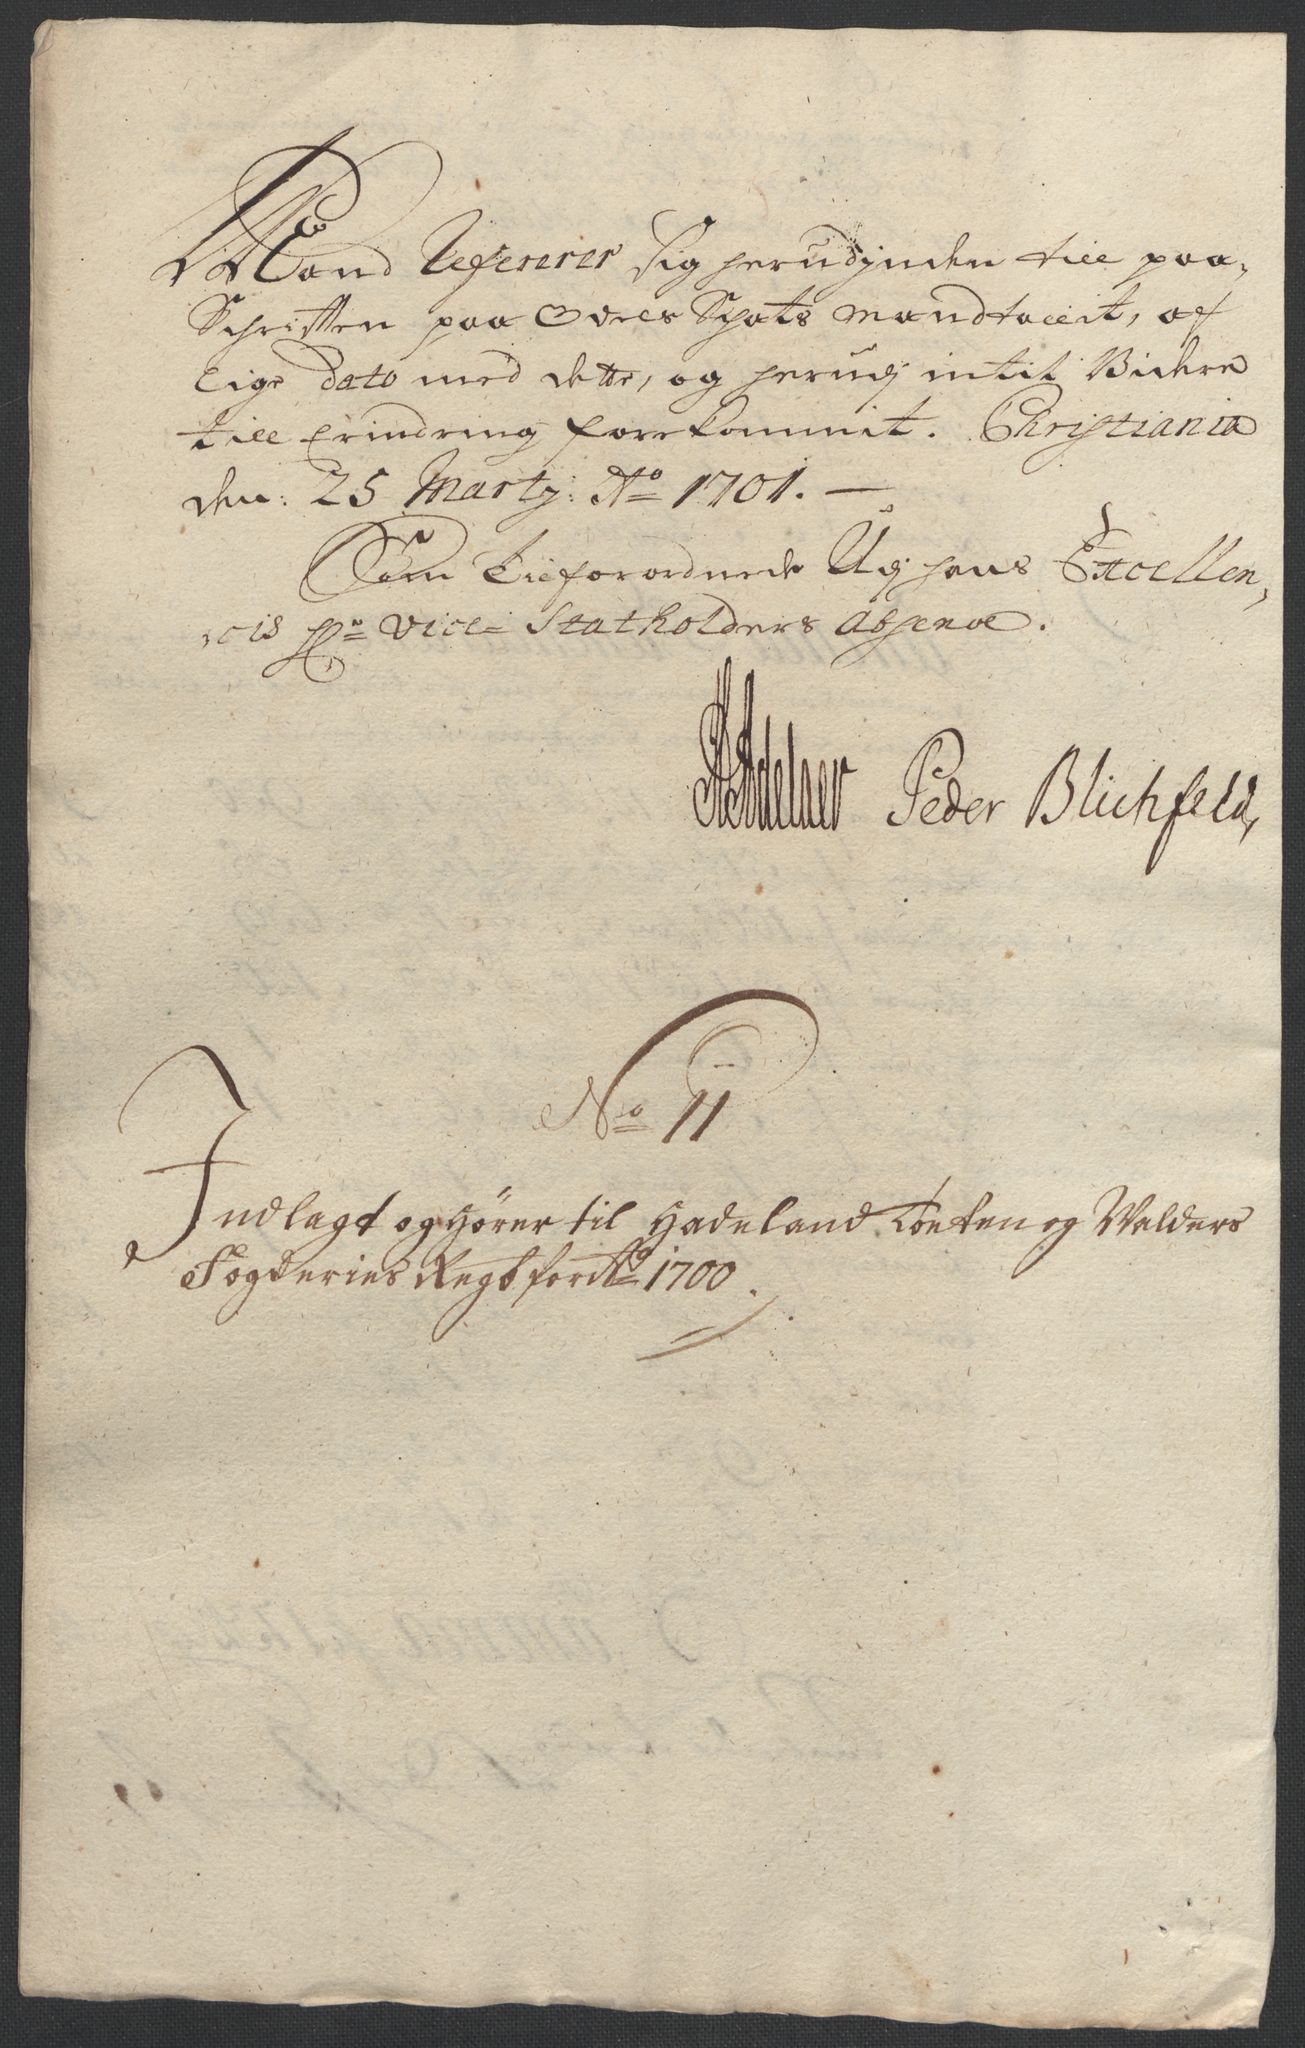 Mand Refererer sig herudjnden till paa-
Schrifften paa Odels Schats mandtallit, af
lige Dato med dette, og herudj intil Videre
till Erindring forekommit. Christiania
den: 25 Marty: Ao 1701. —
Som Tilforordnede Udj hans Excellen-
cis Hr Vice Statholders Absence.
Adelaer Peder Blichfeld,
No 11
Indlagt og Hører til Hadeland Toeten og Walders
Fogderies Regb for Ao 1700.